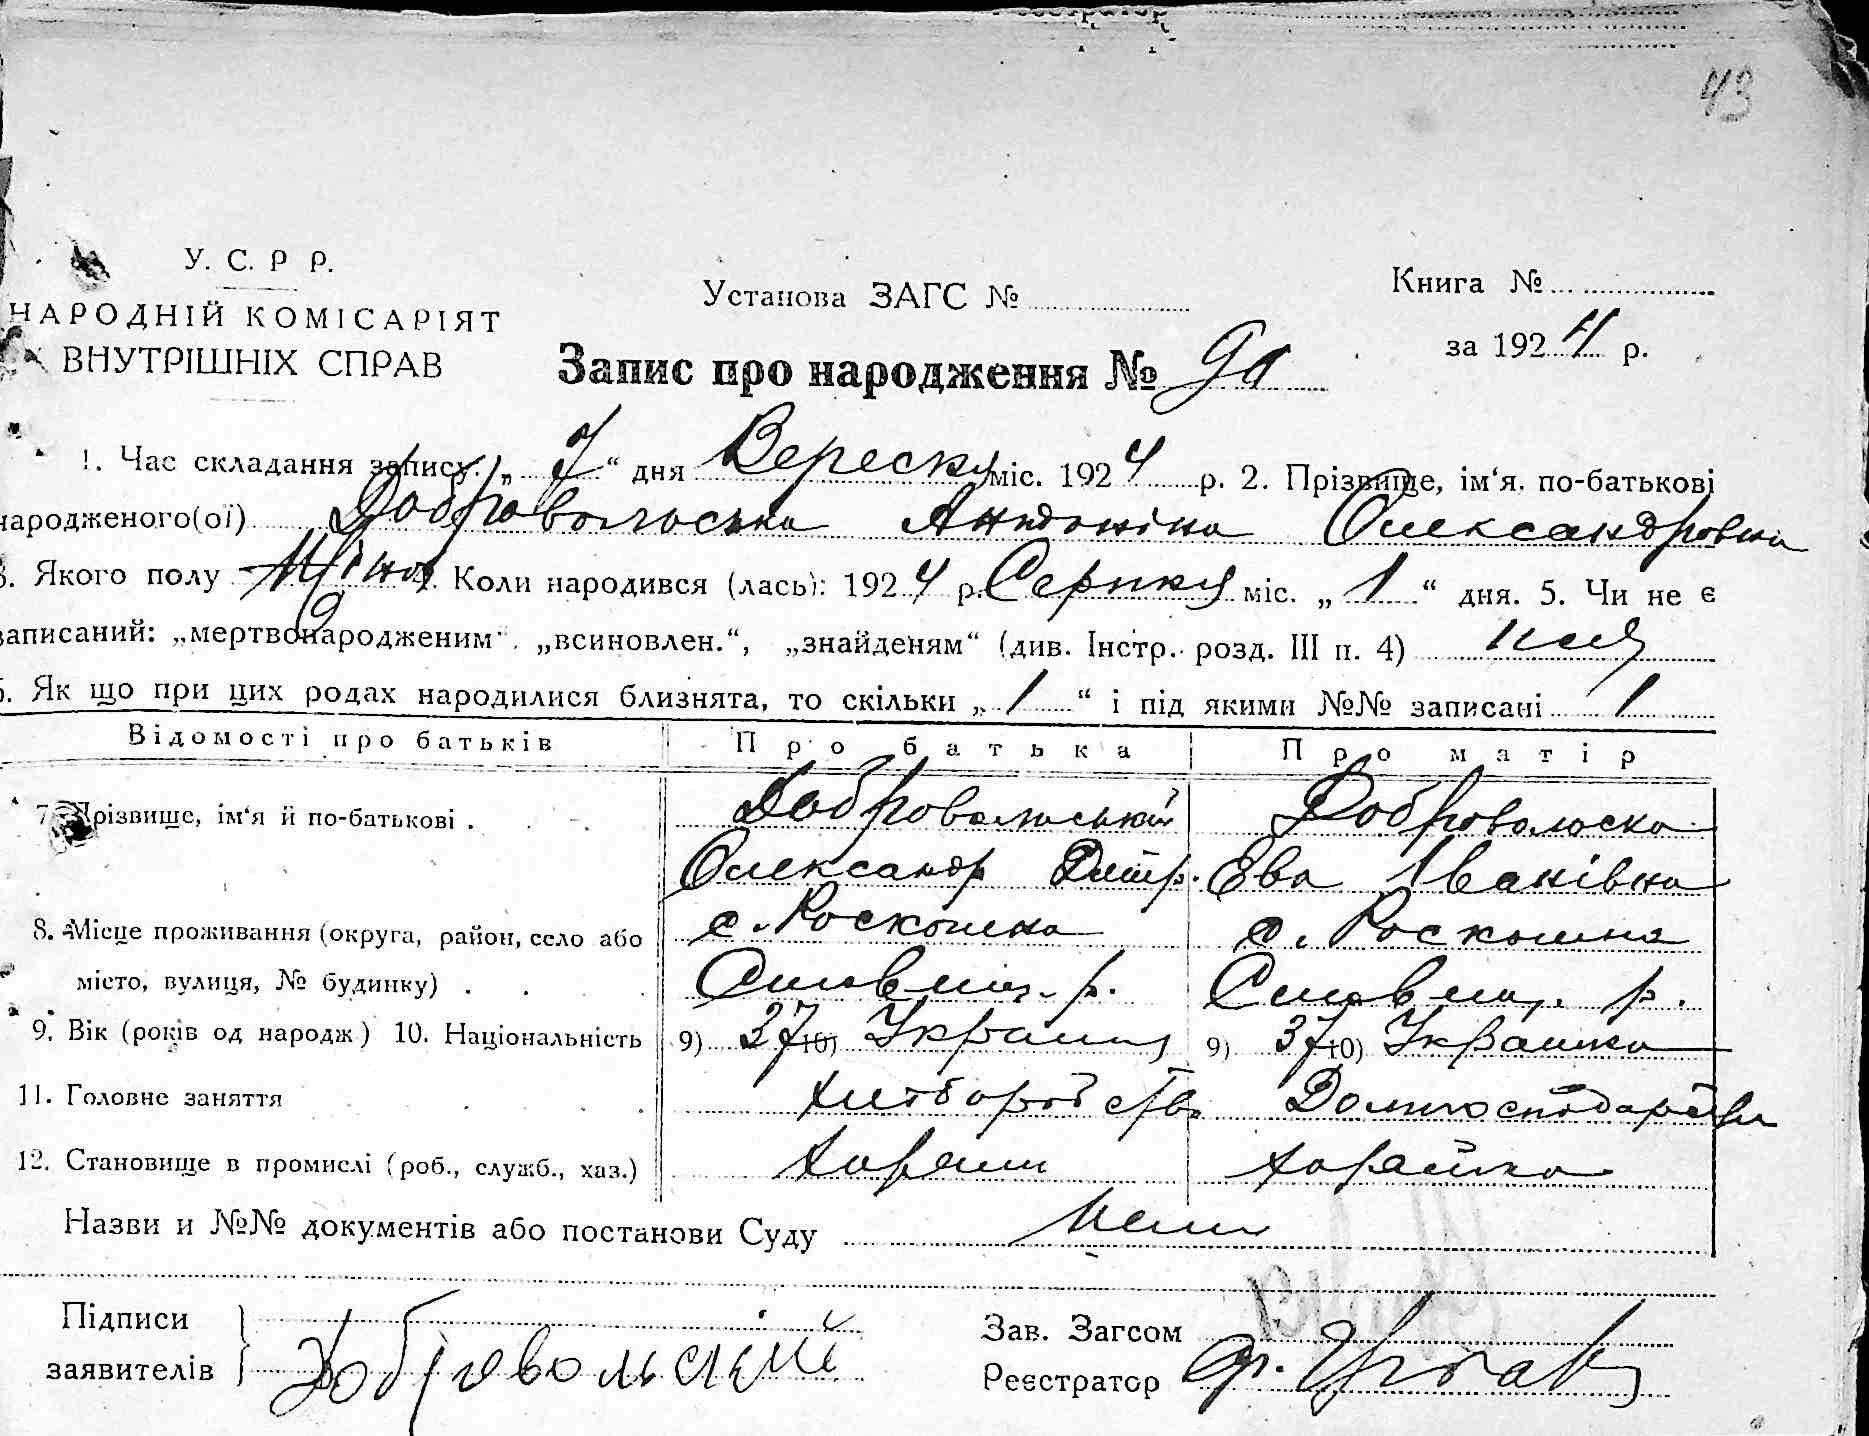 43
У. С. Р Р.
НАРОДНІЙ КОМІСАРІЯТ
ВНУТРІШНІХ СПРАВ
Установа ЗАГС №
Книга №
за 1924 р.
Запис про народження № 90
1. Час складання запису: „ 7 “ дня Вереску міс. 1924 р. 2. Прізвище, ім‘я, по-батькові
народженого(ої) Добровольська Антоніна Олександровна
3. Якого полу Жіноч 4. Коли народився (лась): 1924 р. Серпня міс. „ 1 “ дня. 5. Чи не є
записаний: „мертвонародженим“, „всиновлен.“, „знайденям“ (див. Інстр. розд. III п. 4)
6. Як що при цих родах народилися близнята, то скільки „ 1 “ і під якими №№ записані 1
Відомості про батьків Про батька Про матір
7. Прізвище, ім‘я й по-батькові . Добровольський Добровольска
Олександр Дмитр. Ева Іванівна
8. Місце проживання (округа, район, село або с. Роскошна с. Роскошна
місто, вулиця, № будинку) . р. р.
9. Вік (років од народж) 10. Національність 9) 37 10) Украінец 9) 37 10) Украінка
11. Головне заняття Хліборобство Домогосподарства
12. Становище в промислі (роб., служб., хаз.) Хазяїн Хазяйка
Назви и №№ документів або постанови Суду Нема
Підписи
заявителів Добровольский
Зав. Загсом
Реєстратор